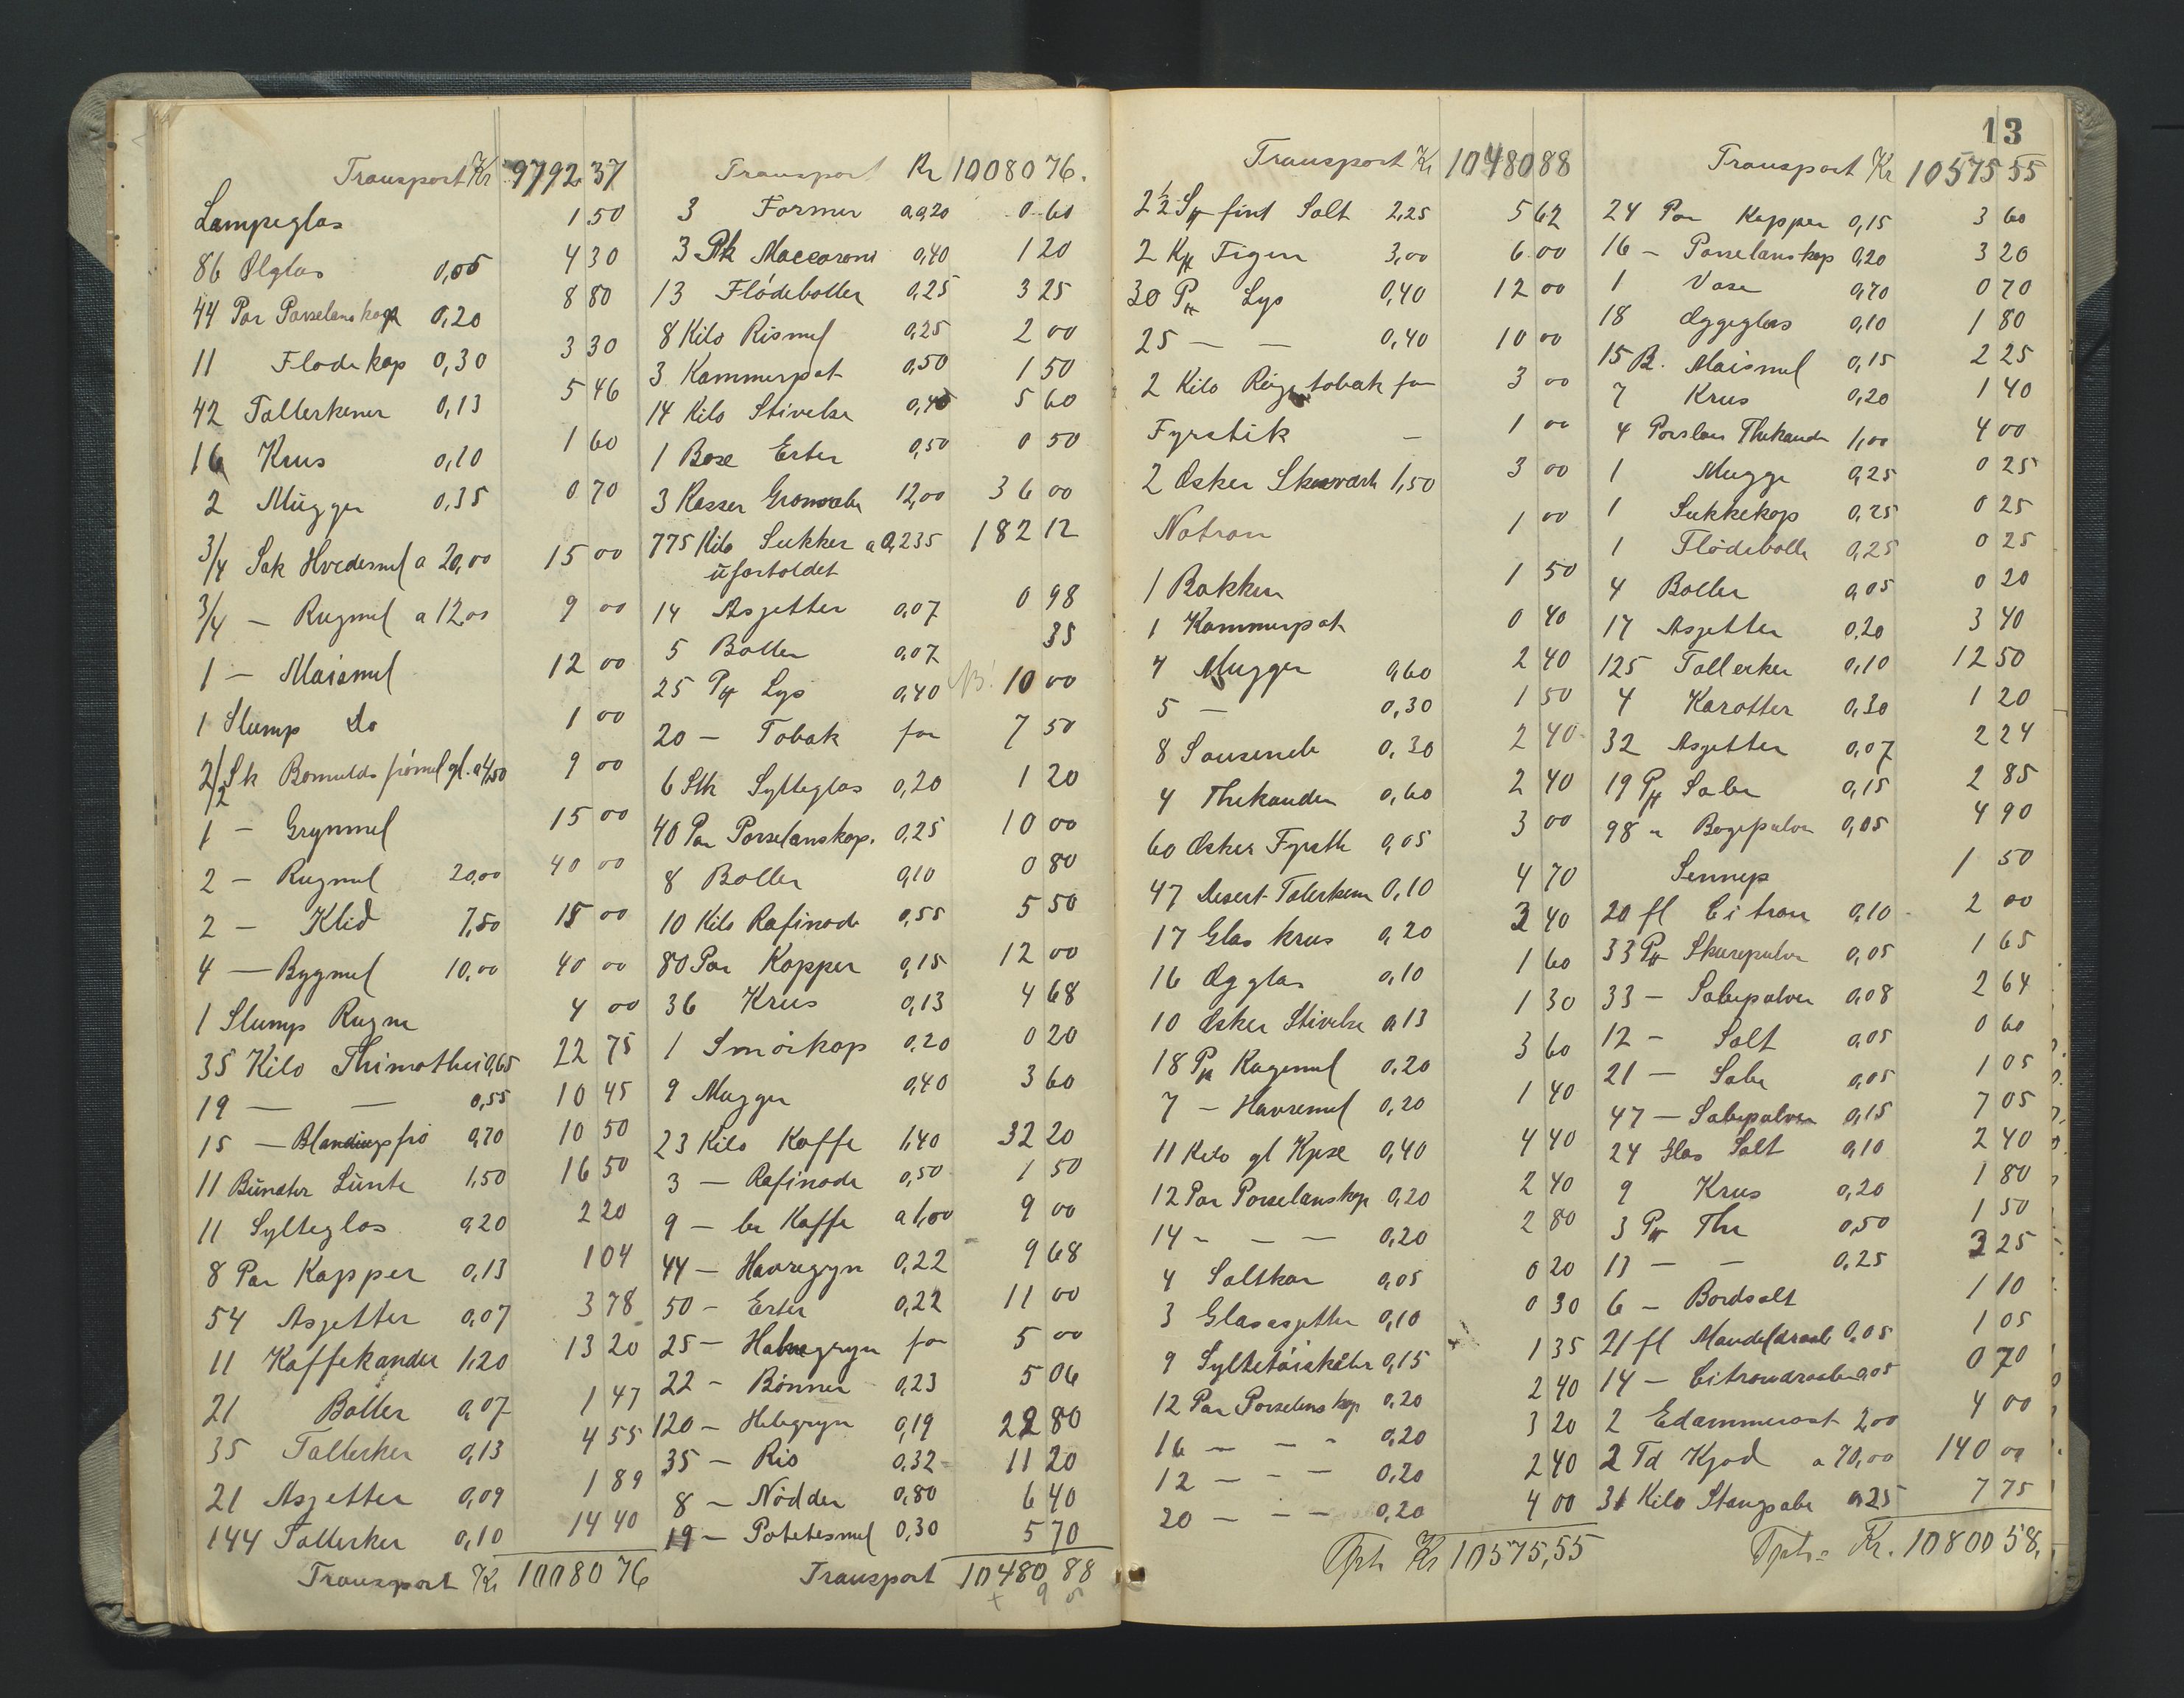 Transport Kr 9792.37
Lampeglas 1 50
86 Ølglas 0,05 4 30
44 Par Porselenskop 0,20 8 80
11 Flødekop 0,30 3 30
42 Tallerkener 0,13 5 46
16 Krus 0,10 1 60
2 Mugger 0,35 0 70
3/4 Sæk Hvedemel a 20,00 15 00
3/4 — Rugmel a 12,00 9 00
1 — Maismel 12 00
1 Slump Do 1 00
2/2 Sk Bomuldsfrömel gl. a 4,50 9 00
1 — Grynmel 15 00
2 — Rugmel 20,00 40 00
2 — Klid 7,50 15 00
4 — Bygmel 10,00 40 00
1 Slump Rugm 4 00
35 Kilo Thimothei 0,65 22 75
19 — — 0,55 10 45
15 — Blandingsfrö 0,70 10 50
11 Bundter Lunte 1,50 16 50
11 Sylteglas 0,20 2 20
8 Par Kopper 0,13 1 04
54 Asjetter 0,07 3 78
11 Kaffekander 1,20 13 20
21 Boller 0,07 1 47
35 Tallerker 0,13 4 55
21 Asjetter 0,09 1 89
144 Tallerker 0,10 14 40
Transport Kr 10080 76
Transport Kr 10080 76.
3 Former a 0,20 0 60
3 Pk Maccaroni 0,40 1 20
13 Flödeboller 0,25 3 25
8 Kilo Rismel 0,25 2 00
3 Kammerpot 0,50 1 50
14 Kilo Stivelse 0,40 5 60
1 Boxe Erter 0,50 0 50
3 Kasser Gronsabe 12,00 36 00
775 Kilo Sukker a 0,235 182 12
ufortoldet
14 Asjetter 0,07 0 98
5 Boller 0,07 35
25 P Lys 0,40 10 00
20 — Tobak for 7 50
6 Stk Sylteglas 0,20 1 20
40 Par Porselanskop. 0,25 10 00
8 Boller 0,10 0 80
10 Kilo Rafinade 0,55 5 50
80 Par Kopper 0,15 12 00
36 Krus 0,13 4 68
1 Smörkop 0,20 0 20
9 Mugger 0,40 3 60
23 Kilo Kaffe 1,40 32 20
3 — Rafinade 0,50 1 50
9 — br Kaffe a 1,00 9 00
44 — Havregryn 0,22 9 68
50 — Erter 0,22 11 00
25 — Havregryn for 5 00
22 — Bönner 0,23 5 06
120 — Helegryn 0,19 22 80
35 — Ris 0,32 11 20
8 — Nödder 0,80 6 40
19 — Potetesmel 0,30 5 70
Transport 10480 88
+ 9 5
Transport Kr 10480 88
2 1/2 S fint Salt 2,25 5 62
2 K Figen 3,00 6 00
30 P Lys 0,40 12 00
25 — — 0,40 10 00
2 Kilo Røgetobak for 3 00
Fyrstik — 1 00
2 Æsker Skosværte 1,50 3 00
Natron 1 00
1 Bakken 1 50
1 Kammerpot 0 40
4 Mugger 0,60 2 40
5 — 0,30 1 50
8 Sauseneb 0,30 2 40
4 Thekander 0,60 2 40
60 Æsker Fyrstk 0,05 3 00
47 Desert Tallerkem 0,10 4 70
17 Glas krus 0,20 3 40
16 Æg glas 0,10 1 60
10 Æsker Stivelse 0,13 1 30
18 P Kagemel 0,20 3 60
7 — Havremel 0,20 1 40
11 Kilo gl Kjxe 0,40 4 40
12 Par Porselanskop 0,20 2 40
14 — — — 0,20 2 80
4 Saltkar 0,05 0 20
3 Glasasjetter 0,10 0 30
9 Syltetöiskåler 0,15 1 35
12 Par Porselens kop 0,20 2 40
16 — — — 0,20 3 20
12 — — — 0,20 2 40
20 — — — 0,20 4 00
Tpt Kr 10575,55
13
Transport Kr 10575 55
24 Par Kopper 0,15 3 60
16 — Porselanskop 0,20 3 20
1 Vase 0,70 0 70
18 Æggeglas 0,10 1 80
15 B. Maismel 0,15 2 25
7 Krus 0,20 1 40
4 Porslan Thekande 1,00 4 00
1 Mugge 0,25 0 25
1 Sukkekop 0,25 0 25
1 Flödebolle 0,25 0 25
4 Boller 0,05 0 20
17 Asjetter 0,20 3 40
125 Tallerker 0,10 12 50
4 Karotter 0,30 1 20
32 Asjetter 0,07 2 24
19 P Sabe 0,15 2 85
98 " Bagepulver 0,05 4 90
Sennep 1 50
20 fl Citron 0,10 2 00
33 P Skurepulver 0,05 1 65
33 — Sabepulver 0,08 2 64
12 — Salt 0,05 0 60
21 — Sabe 0,05 1 05
47 — Sabepulver 0,15 7 05
24 Glas Salt 0,10 2 40
9 Krus 0,20 1 80
3 P The 0,50 1 50
13 — — 0,25 3 25
6 — Bordsalt 1 10
21 fl Mandeldraabe 0,05 1 05
14 — Citrondraabe 0,05 0 70
2 Edammerost 2,00 4 00
2 Td Kjød a 70,00 140 00
31 Kilo Stangsabe 0,25 7 75
Tpt = Kr. 10800 58.